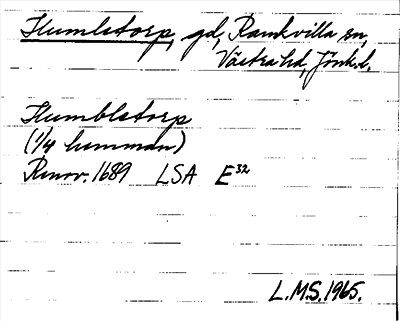 Humletorp, gd, Ramkvilla sn,
Västra hd, Jönk.l.
Humbletorp
(1/4 hemman)
Renov. 1689 LSA E32
L.M.S. 1965.